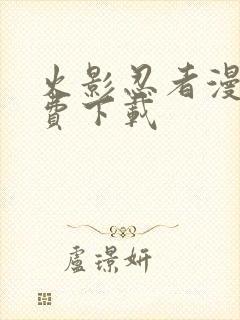 火影忍者漫
費下載
盧璟妍